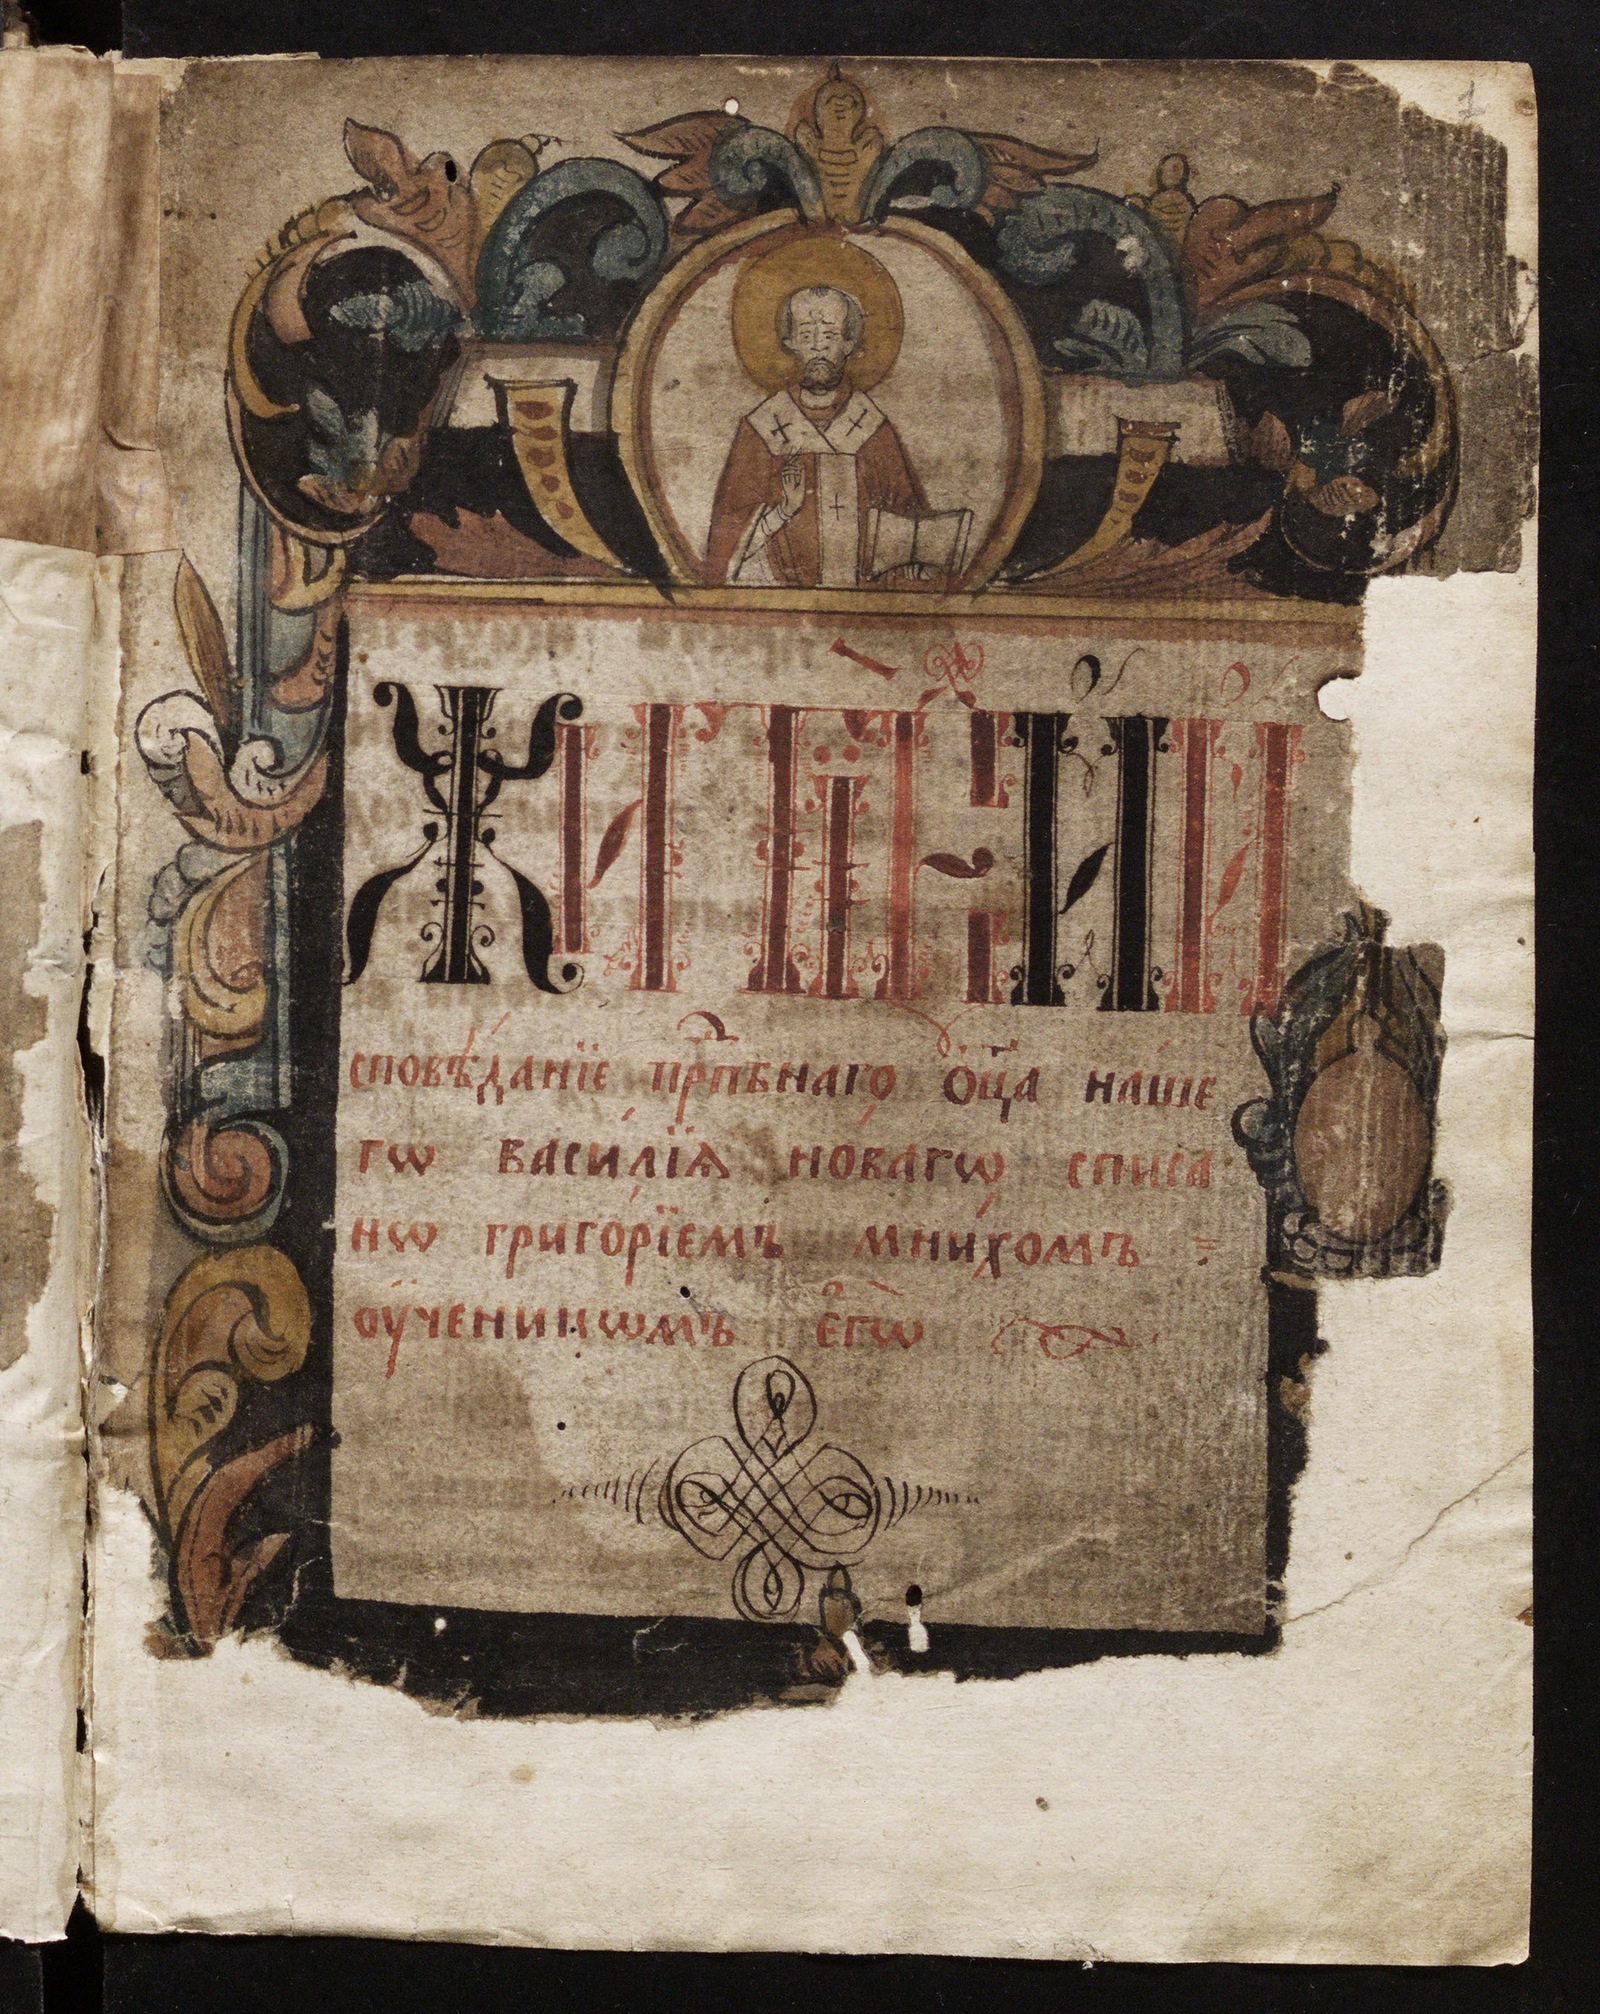 1
ЖИТИЕ И И
споวѣданїе прпⷣбнаго ѻ҆ц҃а наше
гѡ василїѧ новагѡ списа
нѡ григорїемъ мнихомъ =
ѹченикѡмъ є҆гѡ